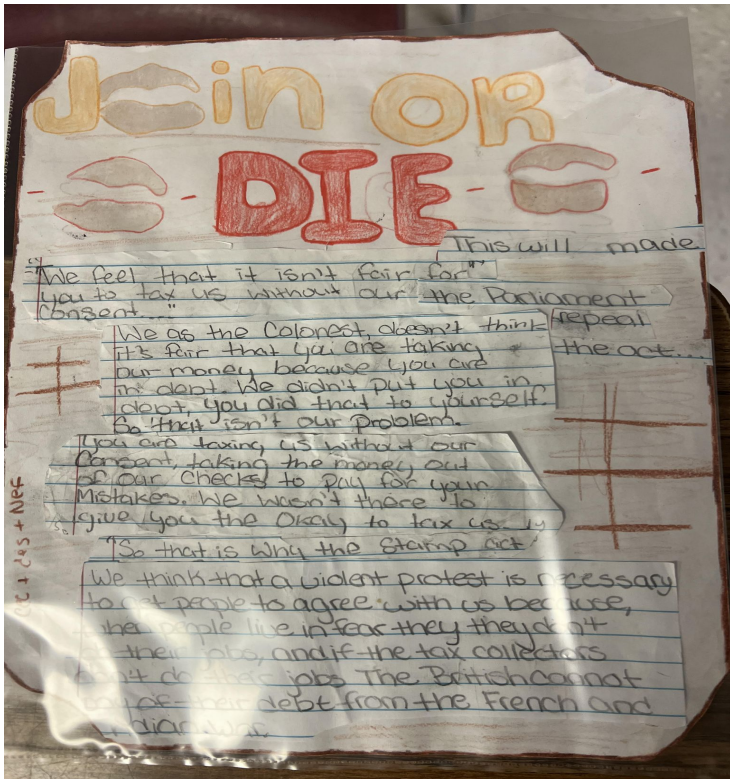 JOIN OR
- DIE - -
This will made
"We feel that it isn't fair for"
you to tax us without our
consent..."
the Parliament
repeal
the act...
We as the Colonest, doesn't think
it's fair that you are taking
our money because you are
in debt. We didn't put you in
debt, you did that to yourself.
So that isn't our problem.
you are taxing us without our
Consent, taking the money out
of our checks to pay for your
Mistakes. We wasn't there to
give you the Okay to tax us
So that is why the Stamp act
We think that a violent protest is necessary
to get people to agree with us because,
when people live in fear they they don't
their jobs, and if the tax collectors
don't do their jobs The British cannot
pay of their debt from the French and
Indian War.